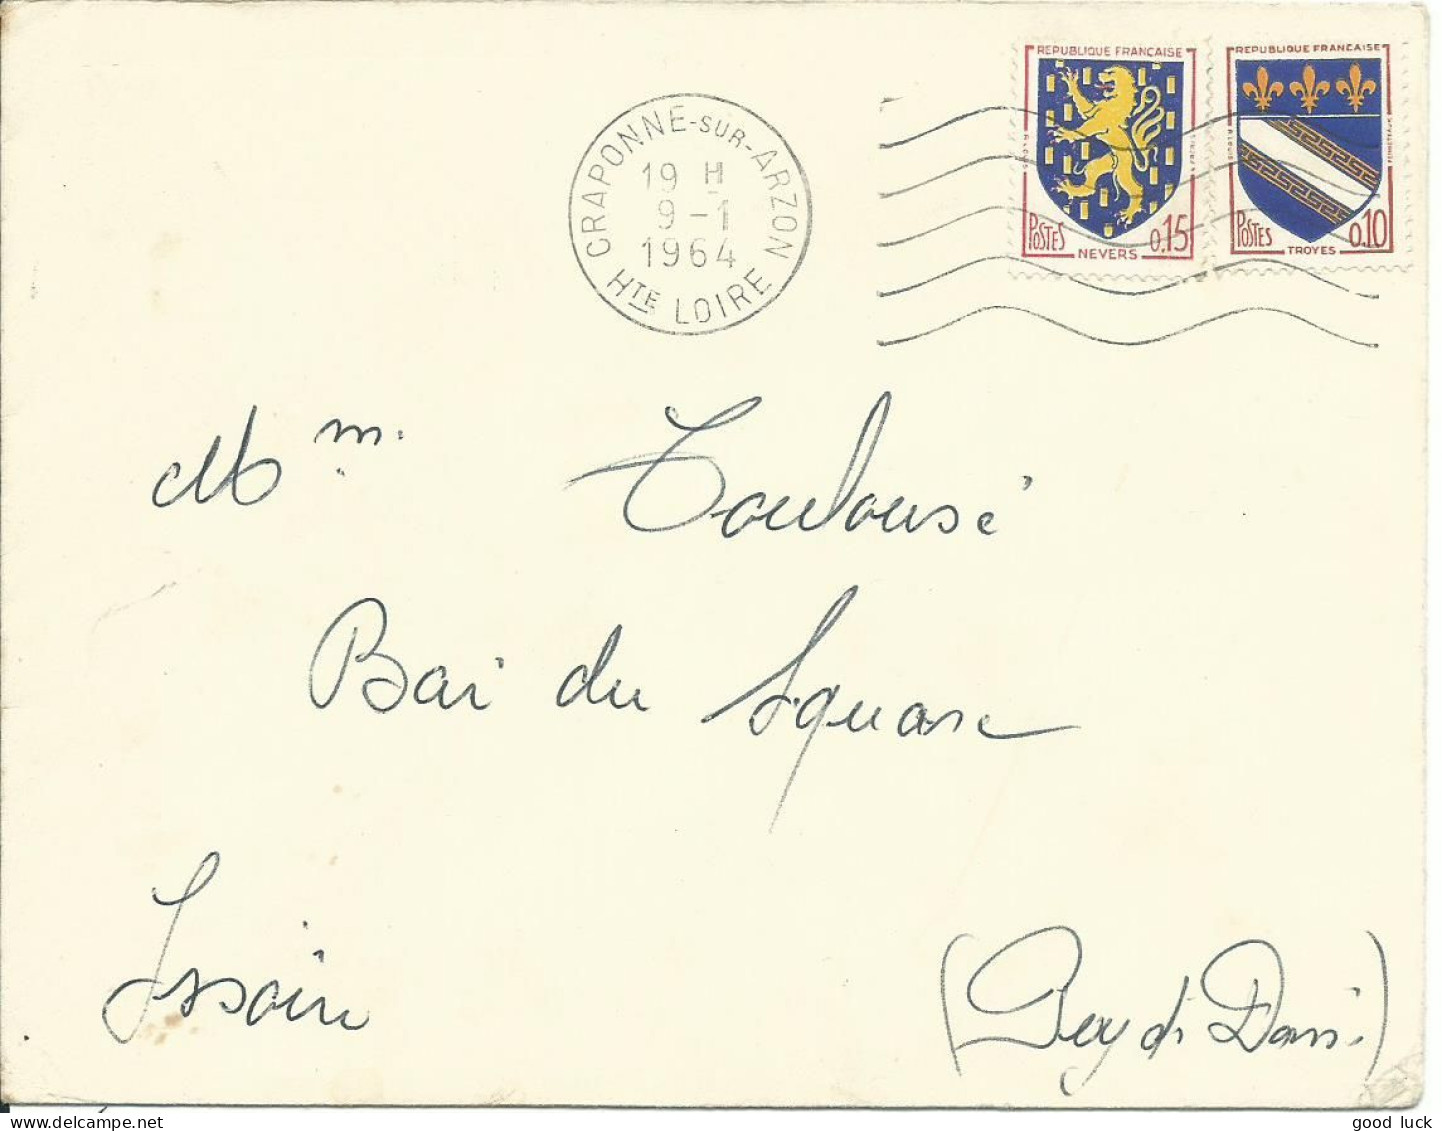 REPUBLIQUE FRANÇAISE
POSTES
0,15
NEVERS
REPUBLIQUE FRANCAISE
POSTES
0,10
TROYES
CRAPONNE-SUR-ARZON
19 H
9-1
1964
HTE LOIRE
Mm. Toulouse
Bar du Square
Issoire
(Puy de Dome)
good luck